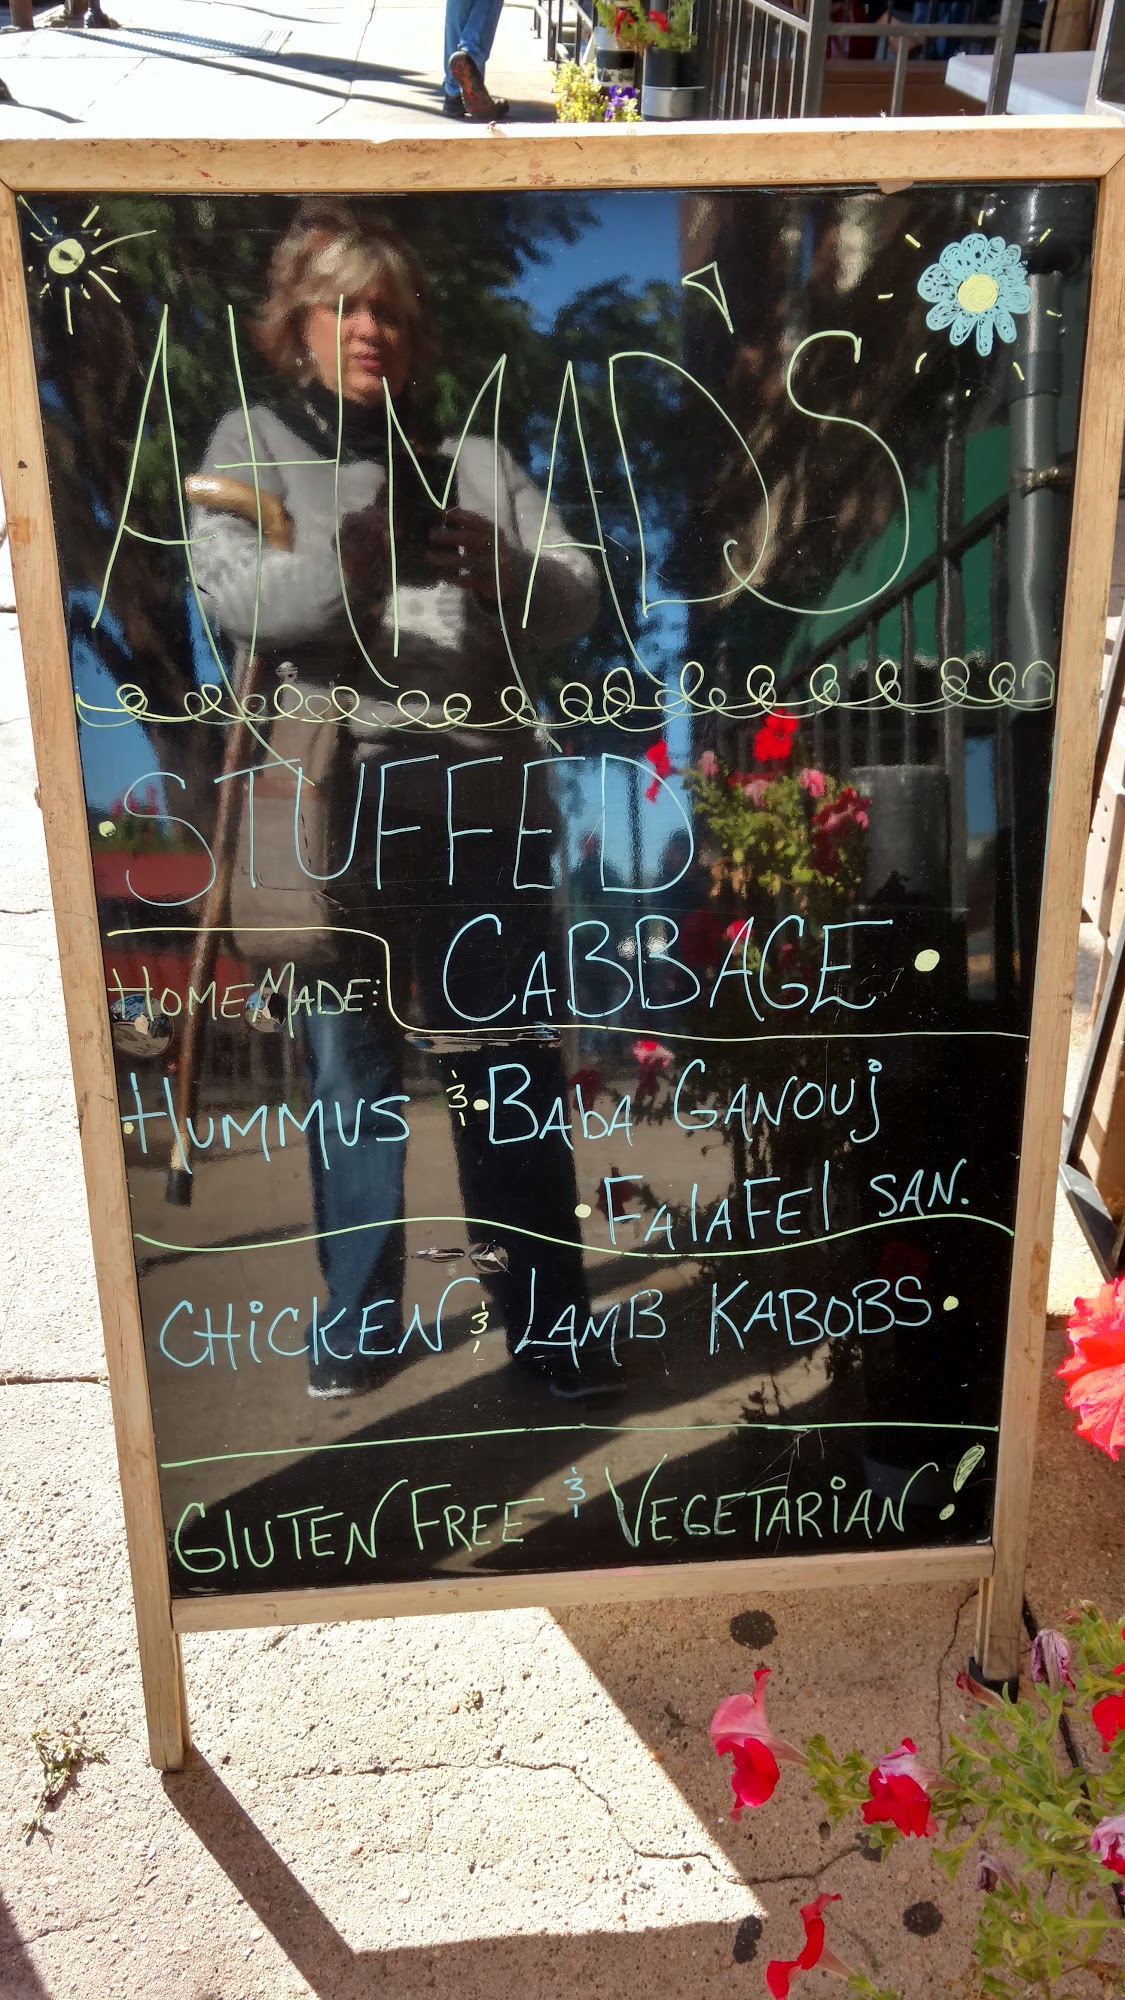 AHMAD'S
STUFFED
CABBAGE
HOMEMADE:
HUMMUS & BABA GANOUJ
FALAFEL SAN.
CHICKEN & LAMB KABOBS
GLUTEN FREE & VEGETARIAN!